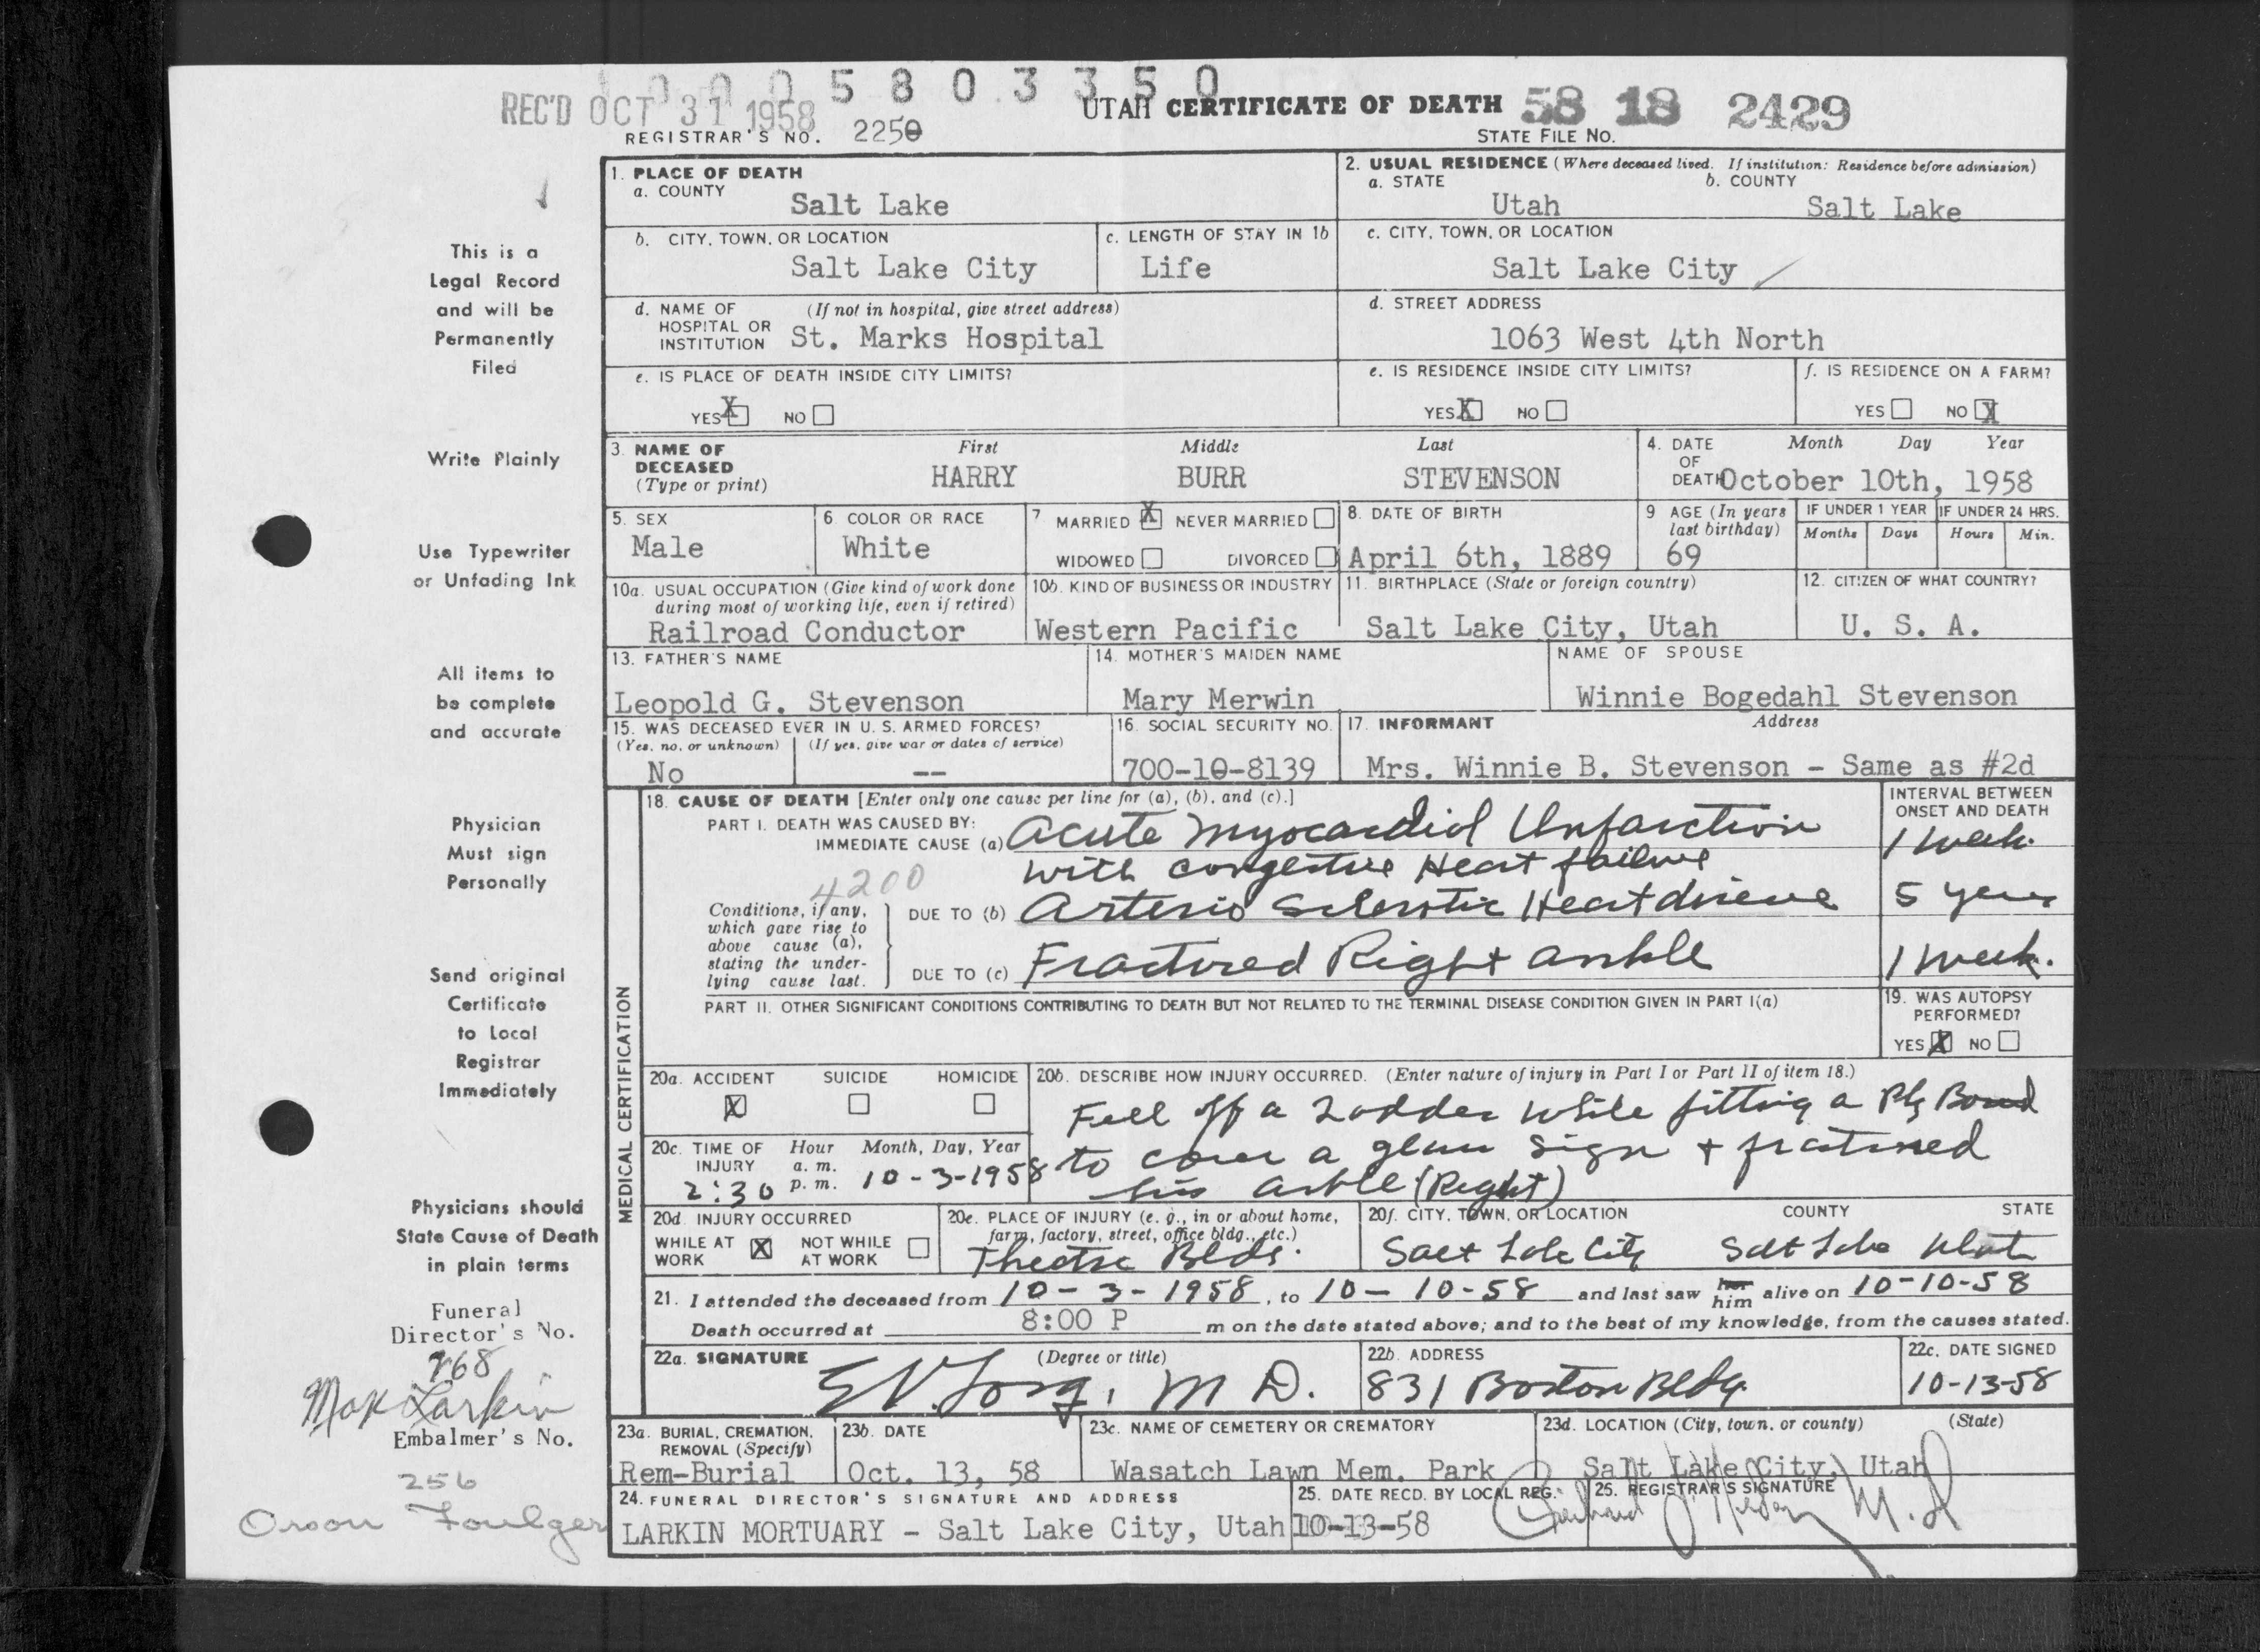 1 0 0 0 5 8 0 3 3 5 0
REC'D OCT 31 1958
UTAH CERTIFICATE OF DEATH 58 18 2429
REGISTRAR'S NO. 2250
STATE FILE NO.
This is a
Legal Record
and will be
Permanently
Filed
Write Plainly
Use Typewriter
or Unfading Ink
All items to
be complete
and accurate
Physician
Must sign
Personally
Send original
Certificate
to Local
Registrar
Immediately
Physicians should
State Cause of Death
in plain terms
Funeral
Director's No.
268
Max Larkin
Embalmer's No.
256
Orson Foulger
1. PLACE OF DEATH
a. COUNTY
Salt Lake
2. USUAL RESIDENCE (Where deceased lived. If institution: Residence before admission)
a. STATE b. COUNTY
Utah Salt Lake
b. CITY, TOWN, OR LOCATION
Salt Lake City
c. LENGTH OF STAY IN 1b
Life
c. CITY, TOWN, OR LOCATION
Salt Lake City
d. NAME OF (If not in hospital, give street address)
HOSPITAL OR
INSTITUTION St. Marks Hospital
d. STREET ADDRESS
1063 West 4th North
e. IS PLACE OF DEATH INSIDE CITY LIMITS?
YES X NO
e. IS RESIDENCE INSIDE CITY LIMITS?
YES X NO
f. IS RESIDENCE ON A FARM?
YES NO X
3. NAME OF
DECEASED
(Type or print)
First Middle Last
HARRY BURR STEVENSON
4. DATE Month Day Year
OF
DEATH October 10th, 1958
5. SEX
Male
6. COLOR OR RACE
White
7 MARRIED X NEVER MARRIED
WIDOWED DIVORCED
8. DATE OF BIRTH
April 6th, 1889
9 AGE (In years
last birthday)
69
IF UNDER 1 YEAR
Months Days
IF UNDER 24 HRS.
Hours Min.
10a. USUAL OCCUPATION (Give kind of work done
during most of working life, even if retired)
Railroad Conductor
10b. KIND OF BUSINESS OR INDUSTRY
Western Pacific
11. BIRTHPLACE (State or foreign country)
Salt Lake City, Utah
12. CITIZEN OF WHAT COUNTRY?
U. S. A.
13. FATHER'S NAME
Leopold G. Stevenson
14. MOTHER'S MAIDEN NAME
Mary Merwin
NAME OF SPOUSE
Winnie Bogedahl Stevenson
15. WAS DECEASED EVER IN U. S. ARMED FORCES?
(Yes, no, or unknown) (If yes, give war or dates of service)
No --
16. SOCIAL SECURITY NO.
700-10-8139
17. INFORMANT Address
Mrs. Winnie B. Stevenson - Same as #2d
MEDICAL CERTIFICATION
18. CAUSE OF DEATH [Enter only one cause per line for (a), (b), and (c).]
INTERVAL BETWEEN
ONSET AND DEATH
PART I. DEATH WAS CAUSED BY:
IMMEDIATE CAUSE (a) Acute Myocardial Infarction 1 week.
with congestive Heart failure
4200
Conditions, if any,
which gave rise to
above cause (a),
stating the under-
lying cause last.
DUE TO (b) Arterio Sclerotic Heart disease 5 years
DUE TO (c) Fractured Right ankle 1 week.
PART II. OTHER SIGNIFICANT CONDITIONS CONTRIBUTING TO DEATH BUT NOT RELATED TO THE TERMINAL DISEASE CONDITION GIVEN IN PART I(a)
19. WAS AUTOPSY
PERFORMED?
YES X NO
20a. ACCIDENT SUICIDE HOMICIDE
X
20b. DESCRIBE HOW INJURY OCCURRED. (Enter nature of injury in Part I or Part II of item 18.)
Fell off a Ladder while fitting a Ply Board
to cover a glass sign + fractured
his ankle (Right)
20c. TIME OF Hour Month, Day, Year
INJURY a. m.
2:30 p. m. 10-3-1958
20d. INJURY OCCURRED
WHILE AT X NOT WHILE
WORK AT WORK
20e. PLACE OF INJURY (e. g., in or about home,
farm, factory, street, office bldg., etc.)
Theatre Bldg.
20f. CITY, TOWN, OR LOCATION COUNTY STATE
Salt Lake City Salt Lake Utah
21. I attended the deceased from 10-3-1958, to 10-10-58 and last saw her him alive on 10-10-58
Death occurred at 8:00 P m on the date stated above; and to the best of my knowledge, from the causes stated.
22a. SIGNATURE (Degree or title)
E V. Long, M D.
22b. ADDRESS
831 Boston Bldg.
22c. DATE SIGNED
10-13-58
23a. BURIAL, CREMATION,
REMOVAL (Specify)
Rem-Burial
23b. DATE
Oct. 13, 58
23c. NAME OF CEMETERY OR CREMATORY
Wasatch Lawn Mem. Park
23d. LOCATION (City, town, or county) (State)
Salt Lake City, Utah
24. FUNERAL DIRECTOR'S SIGNATURE AND ADDRESS
LARKIN MORTUARY - Salt Lake City, Utah
25. DATE RECD. BY LOCAL REG.
10-13-58
25. REGISTRAR'S SIGNATURE
M.D